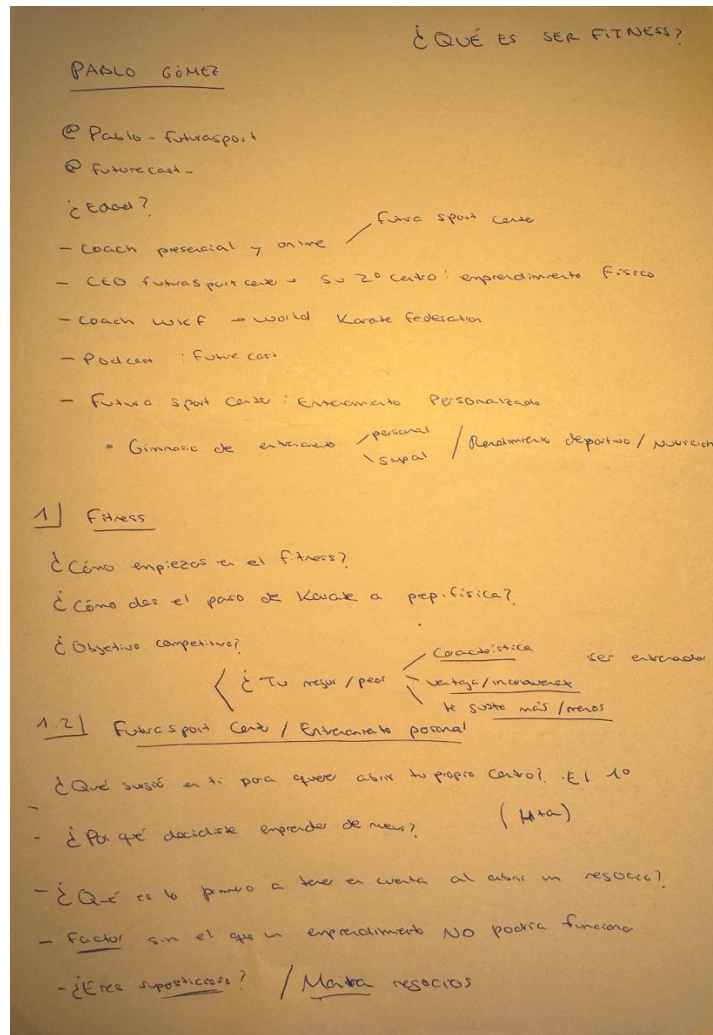 ¿QUÉ ES SER FITNESS?
PABLO GÓMEZ
@ Pablo-futurasport
@ Futurecast-
¿Edad?
Futura sport center
- Coach presencial y online
- CEO futurasport center → Su 2º centro: emprendimiento físico
- Coach WKF → World Karate federation
- Podcast : Future cast
- Futura sport Center : Entrenamiento Personalizado
• Gimnasio de entrenamiento personal / Rendimiento deportivo / Nutrición
grupal
1] Fitness
¿Cómo empiezas en el fitness?
¿Cómo das el paso de Karate a prep. física?
¿Objetivo competitivo?
Característica
¿Tu mejor / peor ventaja/inconveniente ser entrenador
te guste más / menos
1.2] Futura sport Center / Entrenamiento personal
¿Qué surgió en ti para querer abrir tu propio centro? El 1º
- ¿Por qué decidiste emprender de nuevo?
- ¿Qué es lo primero a tener en cuenta al abrir un negocio?
- Factor sin el que un emprendimiento NO podría funcionar
- ¿Eres supersticioso? / Mantra negocios